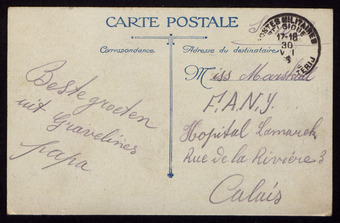 CARTE POSTALE
Correspondance.
Adresse du destinataire.
Beste groeten
uit Gravelines
papa
POSTES MILITAIRES
17-18
30
VI
Miss Marshall
F.A.N.Y.
Hopital Lamarck
Rue de la Rivière 3
Calais